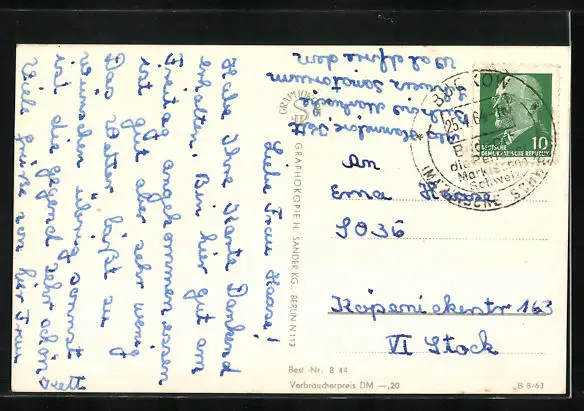 Liebe Frau Haase!
Habe Ihre Karte Dankend
erhalten. Bin hier gut am
Freitag angekommen essen
ist gut aber sehr wenig
Das Wetter läßt zu
wünschen übrig sonst
ist die gegend sehr schön
Viele grüße von hier Frau
Sanatorium
Waldfrieden
An
Erna Haase
SO36
Köpenickerstr 163
VI Stock
GRAPHOKOPIE H. SANDER KG., BERLIN N 113
Best.-Nr. B 44
Verbraucherpreis DM —,20
B 8/63
BUCKOW
25.4.6
die Perle
Märkischen
Schweiz
(MÄRKISCHE SCHW
DEUTSCHE
DEMOKRATISCHE REPUBLIK
10